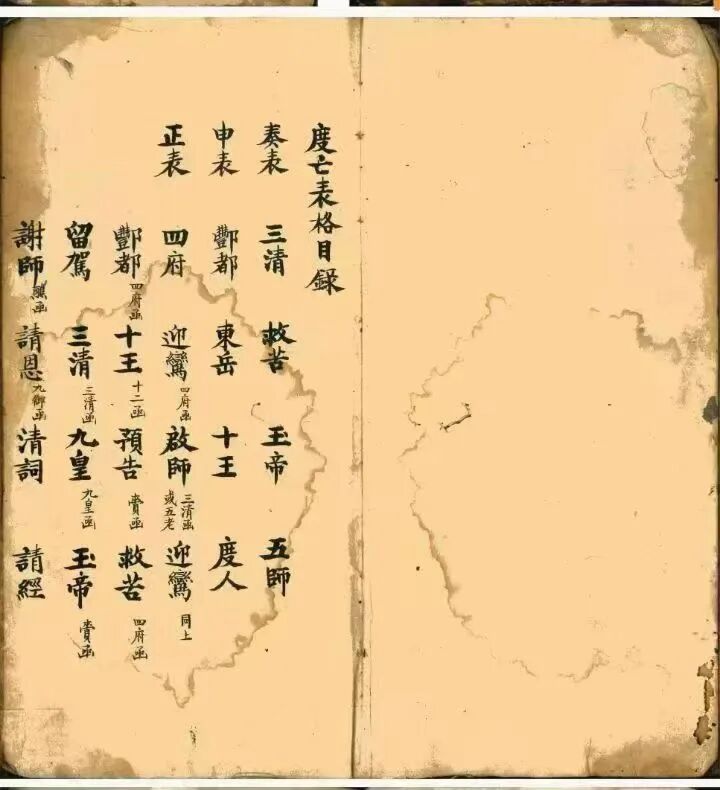 度亡表格目録
奏表 三清 救苦 玉帝 五師
申表 酆都 東岳 十王 度人
正表 四府 迎鸞 四府函 啟師 三清函 或五老 迎鸞 同上
酆都 四府函 十王 十二函 預告 賫函 救苦 四府函
留駕 三清 三清函 九皇 九皇函 玉帝 賫函
謝師 函 請恩 九御函 清詞 請經